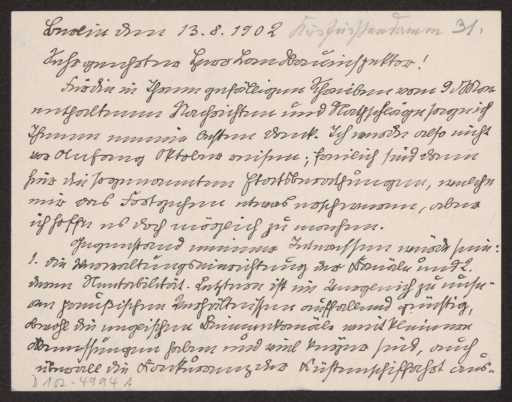 Berlin den 13.8.1902 Kurfürstendamm 31.
Sehr geehrter Herr Landbauinspektor!
Für die in Ihrem gefälligen Schreiben vom 9. d. Mon.
enthaltenen Nachrichten und Rathschläge sage ich
Ihnen meinen besten Dank. Ich werde also nicht
vor Anfang Oktober reisen; freilich sind dann
hier die sogenannten Etatsberathungen, welche
mir das Fortgehen etwas erschweren, aber
ich hoffe es doch möglich zu machen.
Gegenstand meiner Interessen würde sein:
1. die Verwaltungseinrichtung der Kanäle und 2.
deren Rentabilität. Letztere ist im Vergleich zu unse-
ren preußischen Verhältnissen auffallend günstig,
obwohl die englischen Binnenkanäle weit kleinere
Abmessungen haben und viel kürzer sind, auch
überall die Konkurrenz der Küstenschiffahrt aus-
D 102-4994 A